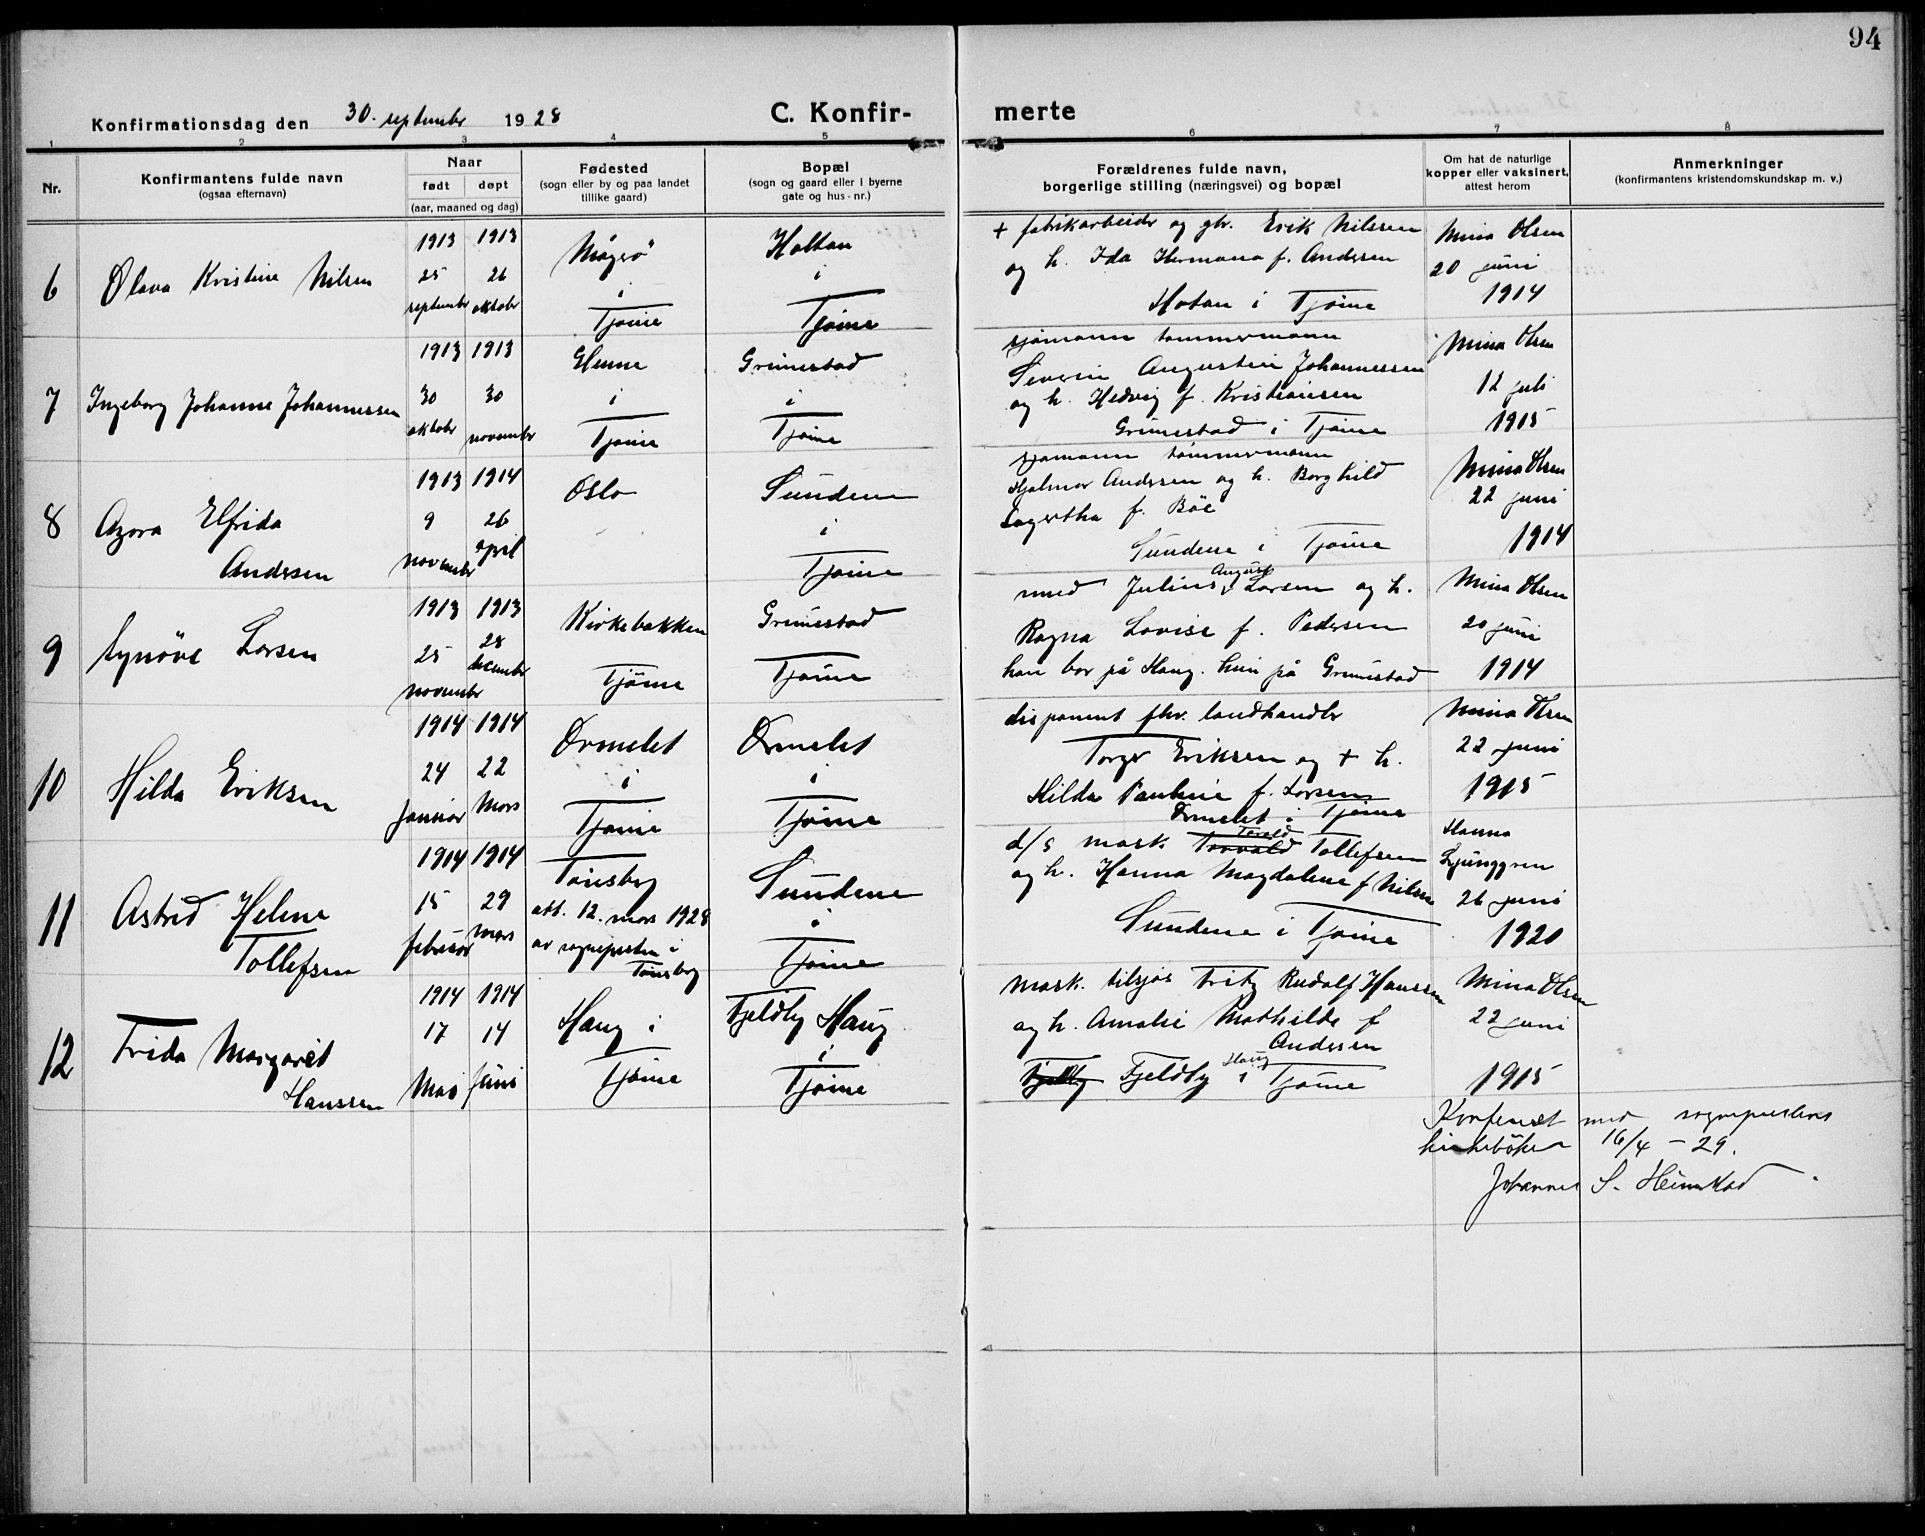 94
Konfirmationsdag den 30. september 1928
C. Konfir-
merte
1 2 3 4 5 6 7 8
Nr.
Konfirmantens fulde navn
(ogsaa efternavn)
Naar
født døpt
(aar, maaned og dag)
Fødested
(sogn eller by og paa landet
tillike gaard)
Bopæl
(sogn og gaard eller i byerne
gate og hus-nr.)
Forældrenes fulde navn,
borgerlige stilling (næringsvei) og bopæl
Om hat de naturlige
kopper eller vaksinert,
attest herom
Anmerkninger
(konfirmantens kristendomskundskap m. v.)
6
Olava Kristine Nilsen
1913
25
september
1913
26
oktober
Mågerö
i
Tjöme
Holtan
i
Tjöme
+ fabrikarbeider og gbr. Erik Nilssen
og h. Ida Hermana f. Andersen
Hotan i Tjöme
Mina Olsen
20 juni
1914
7
Ingeborg Johanne Johannessen
1913
30
oktober
1913
30
november
Glenne
i
Tjöme
Grimestad
i
Tjöme
sjömann tömmermann
Severin Augustin Johannessen
og h. Hedvig f. Kristiansen
Grimestad i Tjöme
Mina Olsen
12 juli
1915
8
Azora Elfrida
Andersen
1913
9
november
1914
26
april
Oslo
Sundene
i
Tjöme
sjömann tömmermann
Hjalmar Andersen og h. Borghild
Lagertha f. Böe
Sundene i Tjöme
Mina Olsen
22 juni
1914
9
Synöve Larsen
1913
25
november
1913
28
december
Kirkebakken
Tjöme
Grimestad
Tjöme
smed Julius August Larsen og h.
Ragna Lovise f. Pedersen
han bor på Haug. hun på Grimestad
Mina Olsen
20 juni
1914
10
Hilda Eriksen
1914
24
januar
1914
22
Mars
Ormelet
i
Tjöme
Ormelet
i
Tjöme
disponent fhv. landhandler
Torger Eriksen og + h.
Hilda Pauline f. Larsen
Ormelet i Tjöme
Mina Olsen
22 juni
1915
11
Astrid Helene
Tollefsen
1914
15
februar
1914
29
mars
Tönsberg
att. 12. mars 1928
av sognepresten i
Tönsberg
Sundene
i
Tjöme
d/s mask. Torvald Torald Tollefsen
og h. Hanna Magdalene f Nilsen
Sundene i Tjöme
Hanna
Ljunggren
26 juni
1920
12
Frida Margaret
Hanssen
1914
17
Mai
1914
14
juni
Haug i
Tjöme
Fjeldby Haug
i
Tjöme
mask. tilsjös Fritz Rudolf Hanssen
og h. Amalie Mathilde f
Andersen
Fjeldby Fjeldby Haug i Tjöme
Mina Olsen
22 juni
1915
Konferert med sogneprestens
kirkebøker 16/4 - 29.
Johannes S.